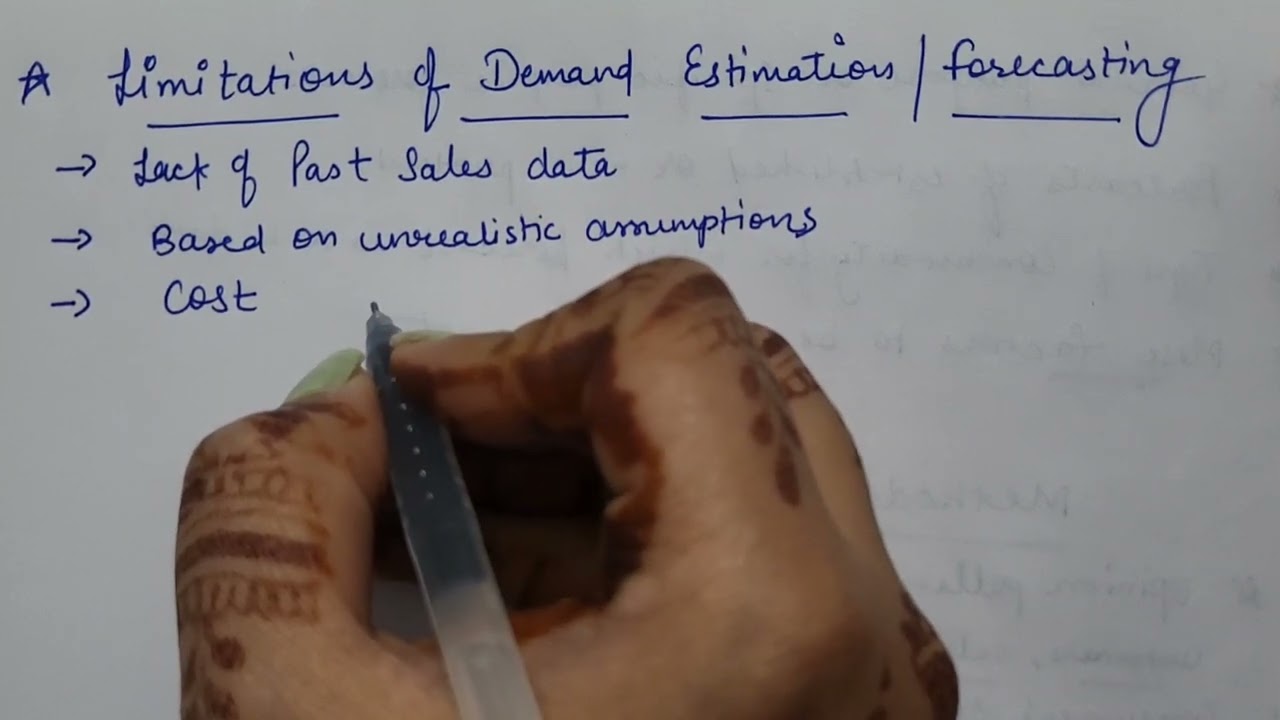 ☆ Limitations of Demand Estimation / forecasting
→ Lack of Past Sales data
→ Based on unrealistic assumptions
→ Cost